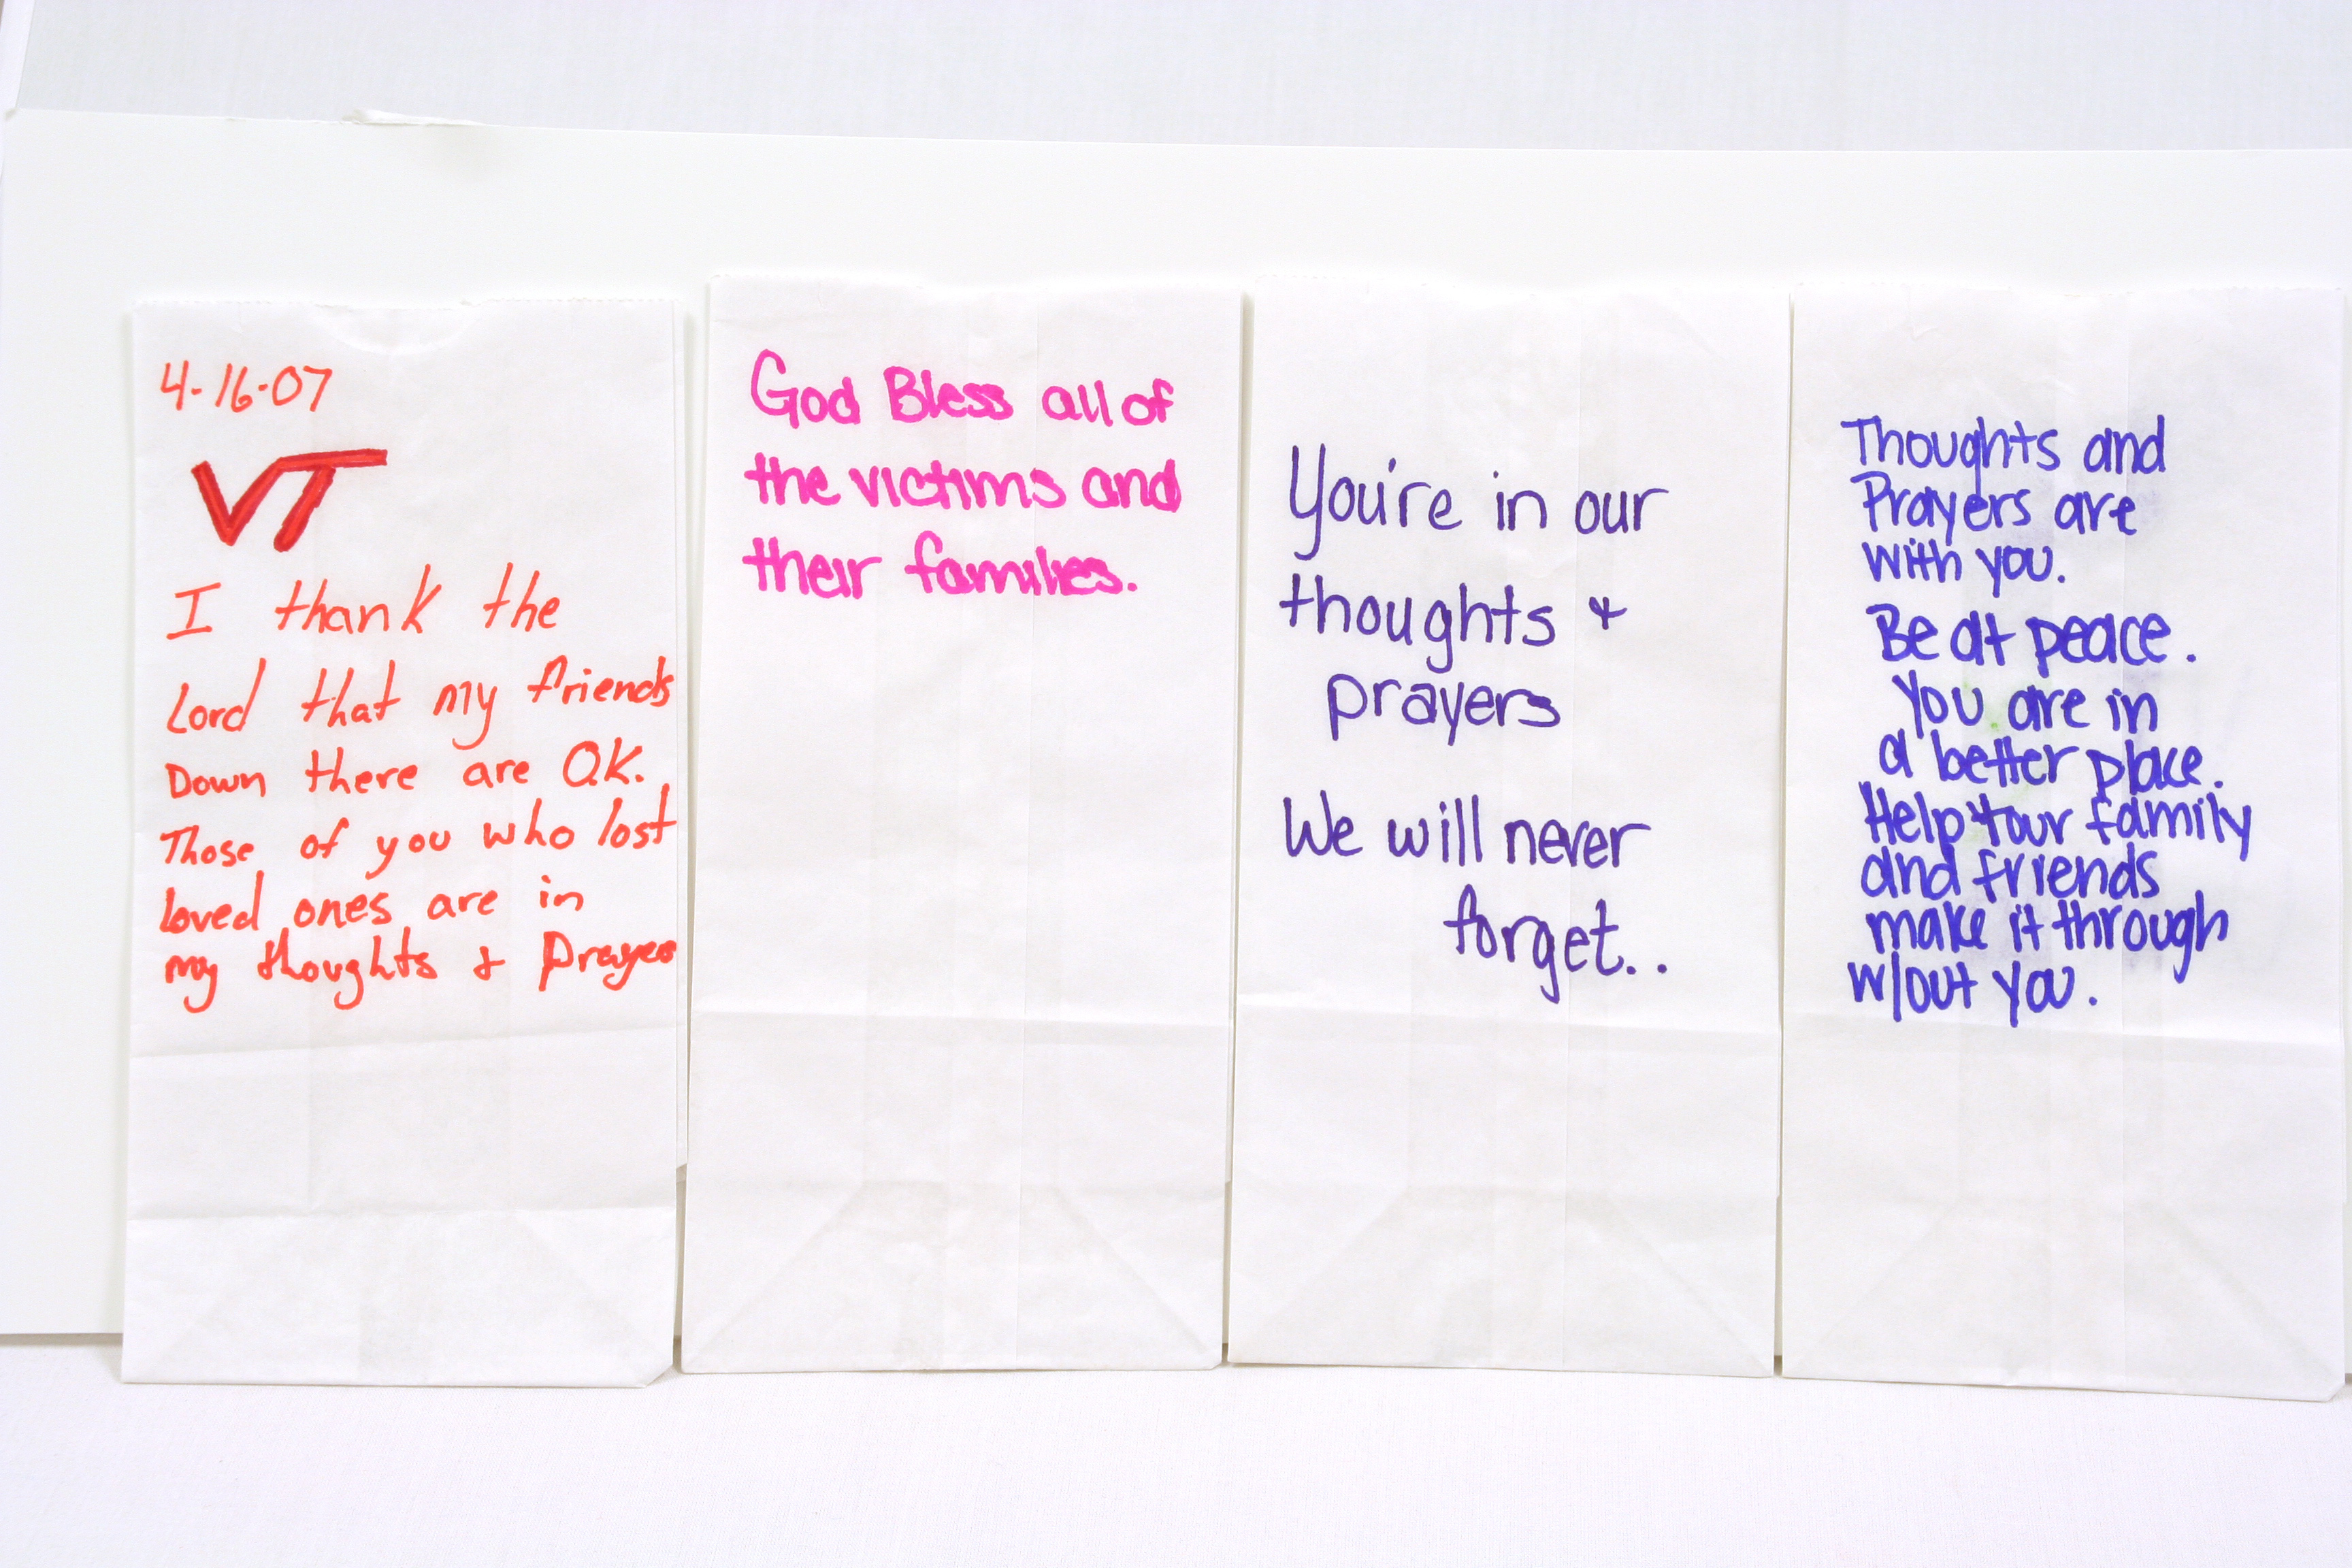 4-16-07
VT
I thank the
Lord that my friends
Down there are O.K.
Those of you who lost
loved ones are in
my thoughts & Prayers
God Bless all of
the victims and
their families.
You're in our
thoughts &
prayers
We will never
forget..
Thoughts and
Prayers are
with you.
Be at peace.
You are in
a better place.
Help Your family
and friends
make it through
w/out you.